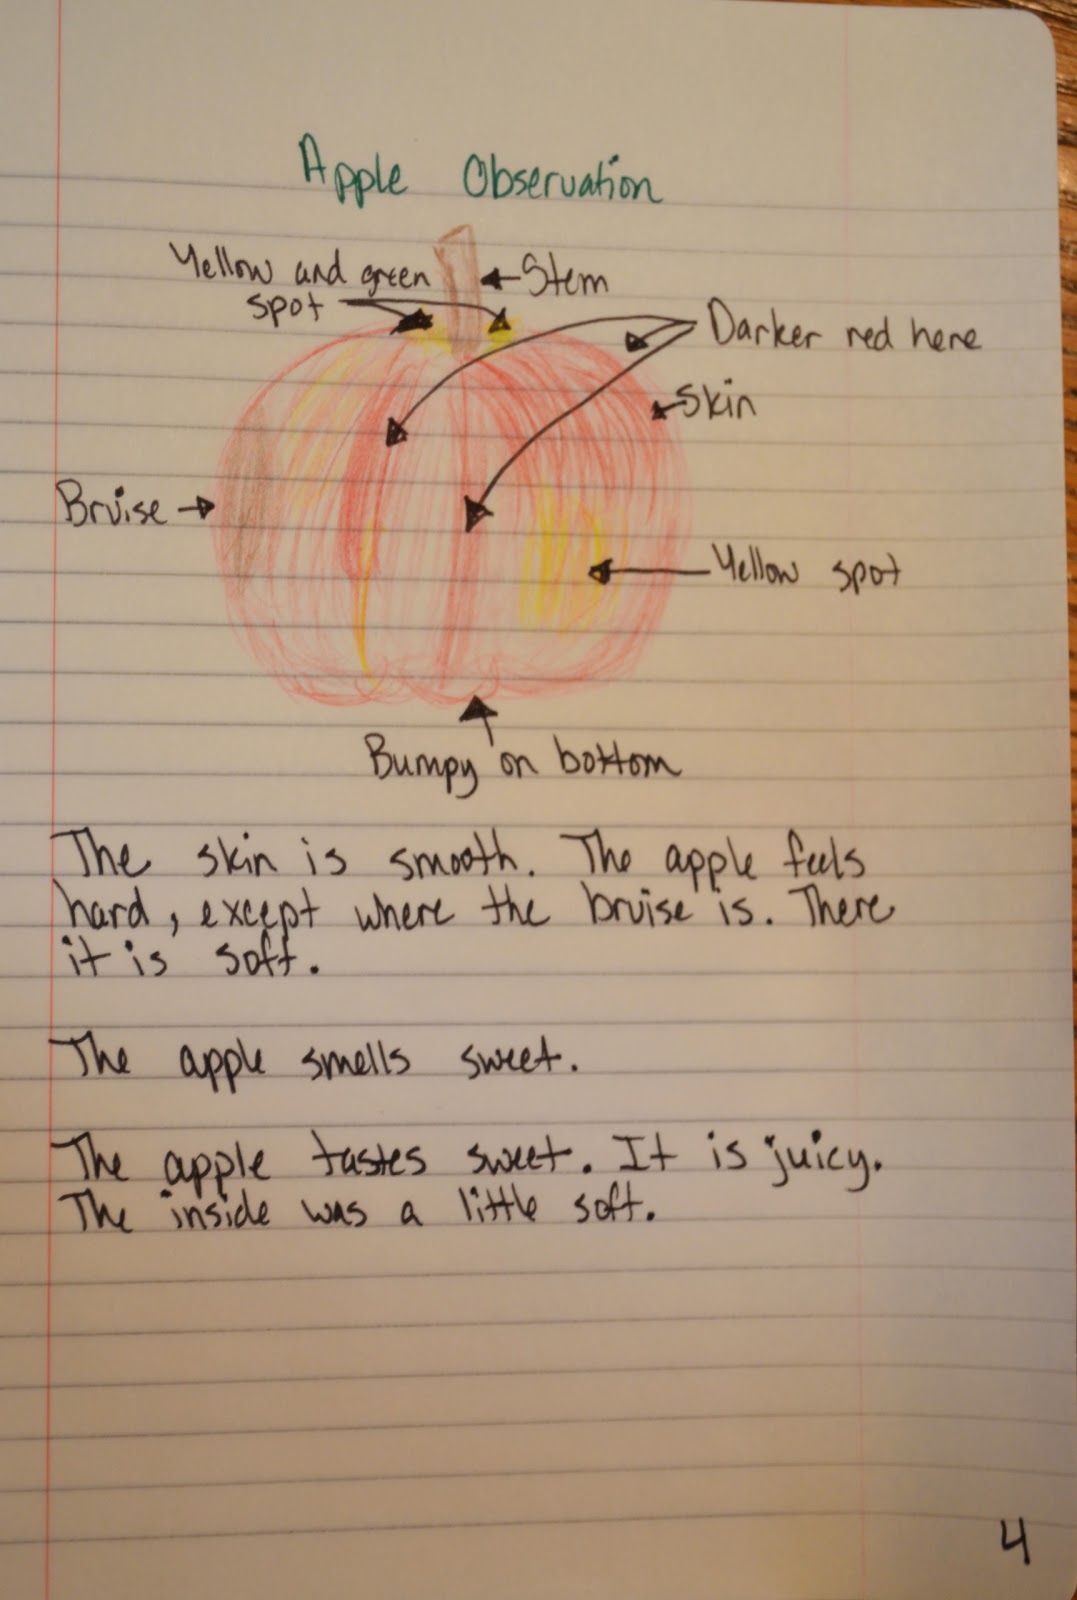 Apple Observation
Yellow and green
spot
Stem
Darker red here
Skin
Bruise
Yellow spot
Bumpy on bottom
The skin is smooth. The apple feels
hard, except where the bruise is. There
it is soft.
The apple smells sweet.
The apple tastes sweet. It is juicy.
The inside was a little soft.
4